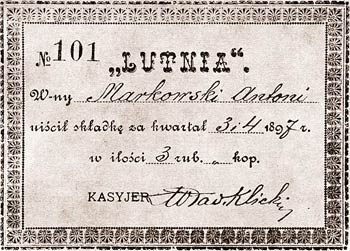 № 101
„LUTNIA“.
W-ny Markowski Antoni
uiścił składkę za kwartał 3 i 4 1897 r.
w ilości 3 rub. „ kop.
KASYJER Klicki